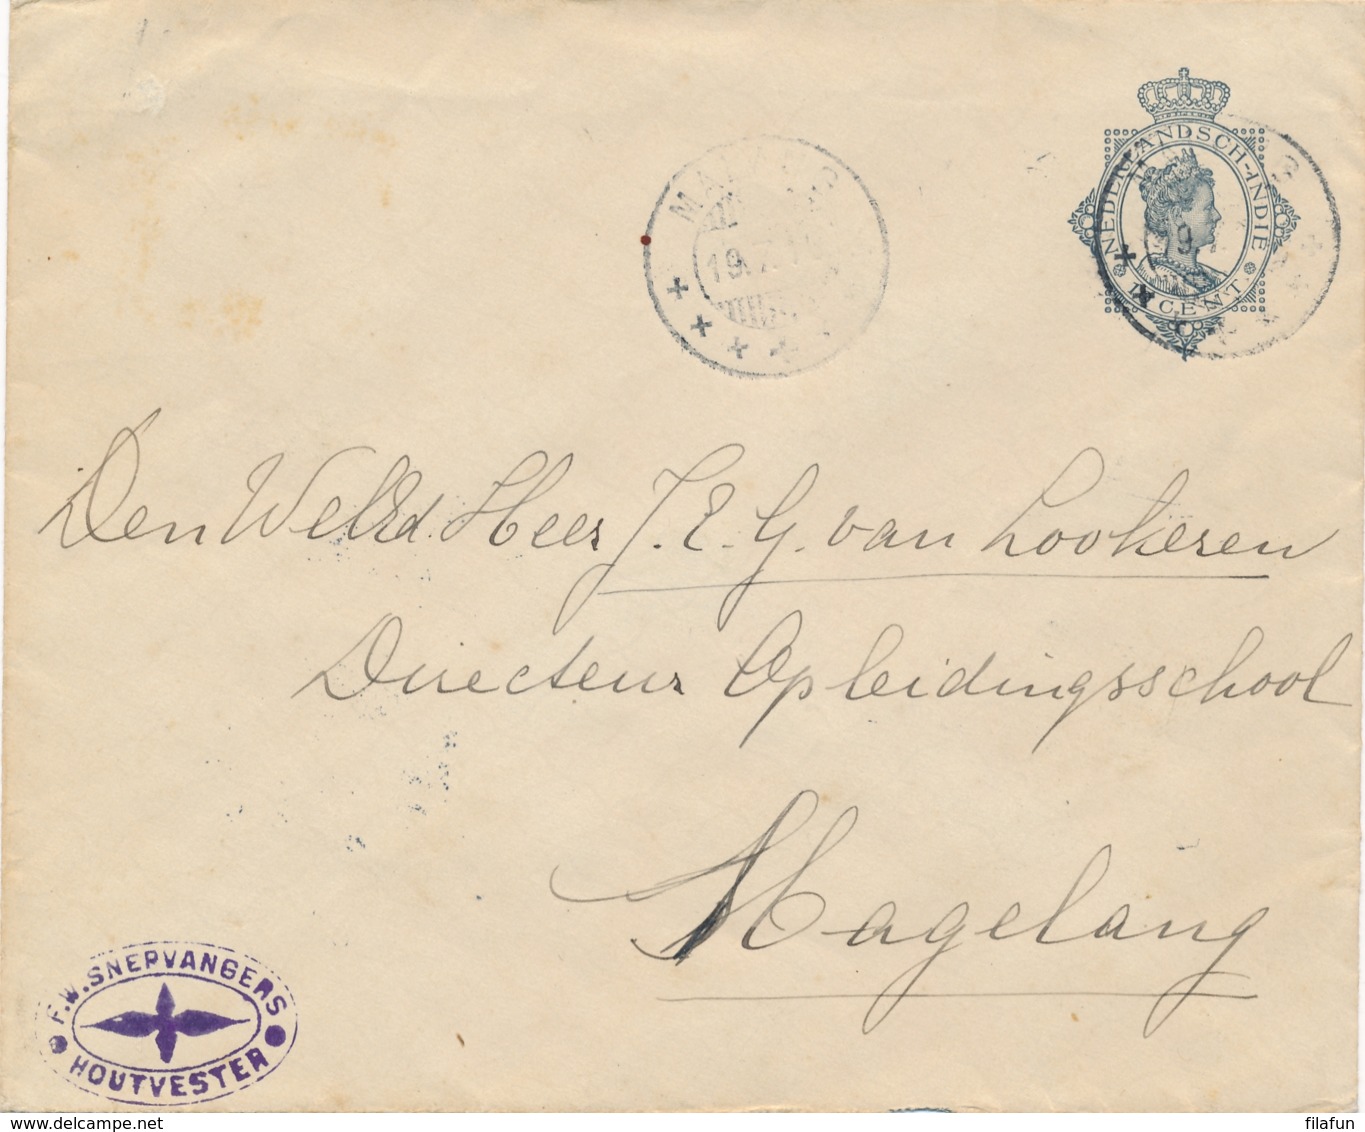 NEDERLANDSCH-INDIE
CENT.
MALANG
19
Den WelEd. Heer J. E. G. van Lookeren
Directeur Opleidingsschool
Magelang
F.W. SNEPVANGERS
HOUTVESTER
delcampe.net
filafun